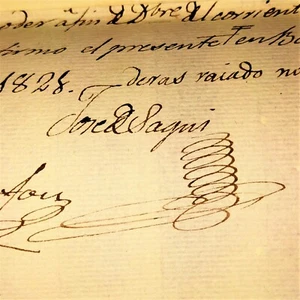 poder à fin de Dbre. del corrient
firmo el presente en B
1828. deras raiado no
Jore de Sagui